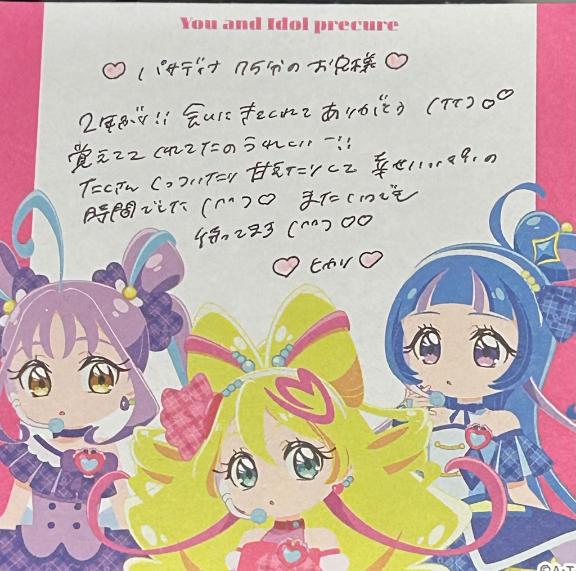 You and Idol precure
♡ パサディナ 75分の お兄様 ♡
2年ぶり!! 会いに きてくれて ありがとう (TT)♡♡
覚えてて くれてたの うれしい〜!!
たくさん くっついたり 甘えたりして 幸せいっぱいの
時間でした (^^)♡ またいつでも
待ってます (^^)♡♡
♡ ♡
©A·T